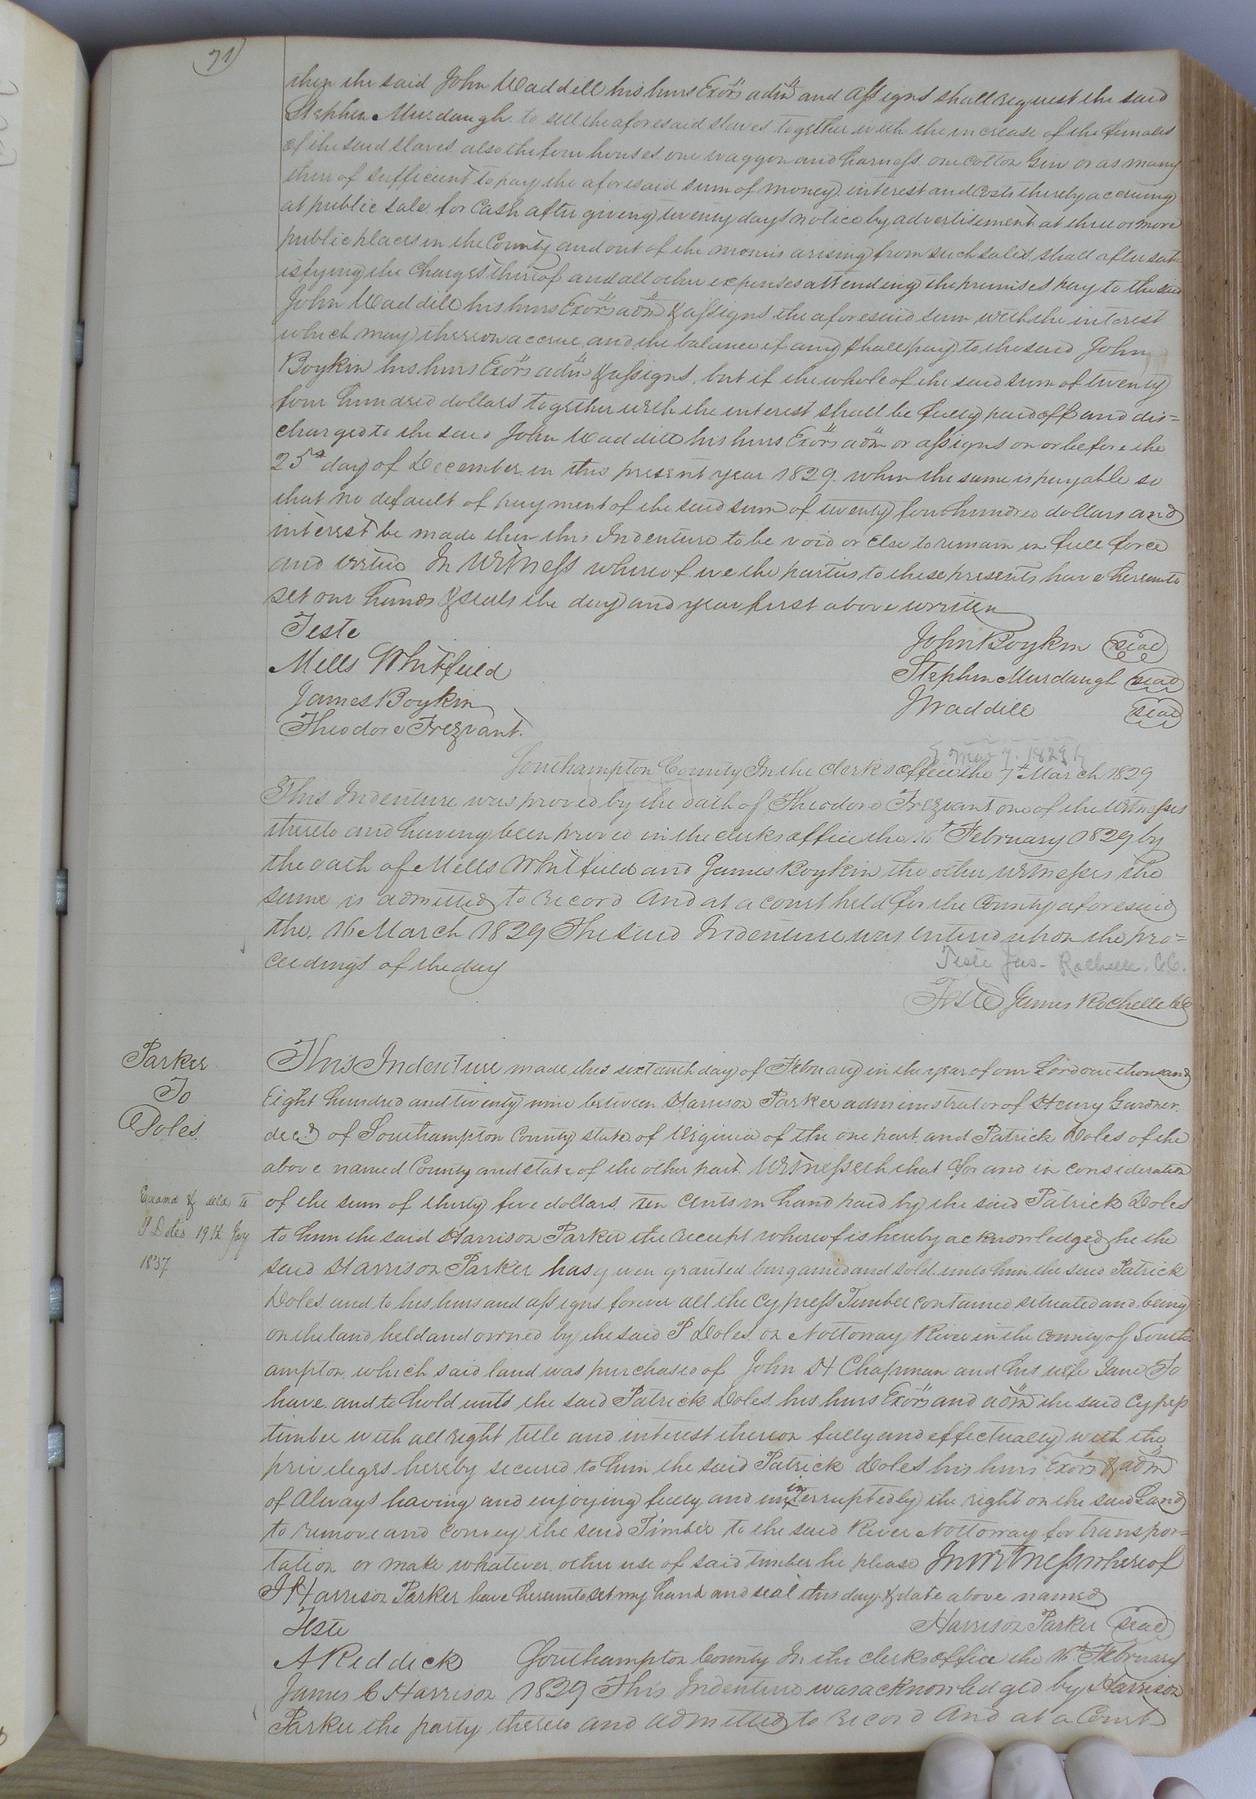 71
then the said John Waddill his heirs Exörs adm̈ and assigns shall request the said
Stephen Murdaugh to sell the aforesaid slaves together with the increase of the females
of the said slaves also the four houses one waggon and harness one cotton Gin or as many
there of sufficient to pay the aforesaid sum of money interest and costs thereby accruing
at public sale for cash after giving twenty days notice by advertisement at three or more
public places in the County and out of the monies arising from such sales shall after sat-
isfying the charges thereof and all other expenses attending the premises pay to the said
John Waddill his heirs Exörs adm̈ & assigns the aforesaid sum with the interest
which may thereon accrue and the balance if any shall pay to the said John
Boykin his heirs Exörs adm̈ & assigns, but if the whole of the said sum of twenty
four hundred dollars together with the interest shall be fully paid off and dis=
charged to the said John Waddill his heirs Exörs adm̈ or assigns on or before the
25th day of December in this present year 1829. when the same is payable so
that no default of payment of the said sum of twenty four hundred dollars and
interest be made then this Indenture to be void or else to remain in full force
and virtue In Witness whereof we the parties to these presents have hereunto
set our hands & seals the day and year first above written
Teste
John Boykin seal
Mells Whitfield
Stephen Murdaugh seal
James Boykin
J Waddill seal
Theodore Trezvant.
Mar 7. 1829
Southampton County In the Clerks office the 7th March 1829
This Indenture was proved by the oath of Theodore Trezvant one of the witnesses
thereto and having been proved in the clerks office the 16th February 1829 by
the oath of Mells Whitfield and James Boykin the other witnesses the
same is admitted to record And at a court held for the County aforesaid
the 16 March 1829 The said Indenture was entered upon the pro=
ceedings of the day
Teste Jas. Rochelle. CC.
Teste James Rochelle CC
Parker
To
Doles
Examd & deld to
P Doles 19th Jay
1837
This Indenture made this sixteenth day of February in the year of our Lord one thousand
Eight hundred and twenty nine between Harrison Parker administrator of Henry Gardner
decd of Southampton County state of Virginia of the one part and Patrick Doles of the
above named County and state of the other part. Witnesseth that for and in consideration
of the sum of thirty five dollars ten cents in hand paid by the said Patrick Doles
to him the said Harrison Parker the receipt whereof is hereby acknowledged he the
said Harrison Parker has given granted bargained and sold unto him the said Patrick
Doles and to his heirs and assigns forever all the Cypress Timber contained situated and being
on the land held and owned by the said P Doles on Nottoway River in the county of South
ampton which said land was purchased of John H Chapman and his wife Jane To
have and to hold unto the said Patrick Doles his heirs Exörs and adm̈ the said Cypress
timber with all right title and interest thereon fully and effectually with the
privileges hereby secured to him the said Patrick Doles his heirs Exörs & adm̈
of Always having and enjoying fully and uninterruptedly the right on the said Land
to remove and convey the said Timber to the said River Nottoway for transpor=
tation or make whatever other use of said timber he please In witness whereof
I Harrison Parker have hereunto set my hand and seal this day & date above named
Teste
Harrison Parker seal
A Riddick
Southampton County In the clerks office the 16th February
James C Harrison
1829 This Indenture was acknowledged by Harrison
Parker the party thereto and admitted to record And at a Court